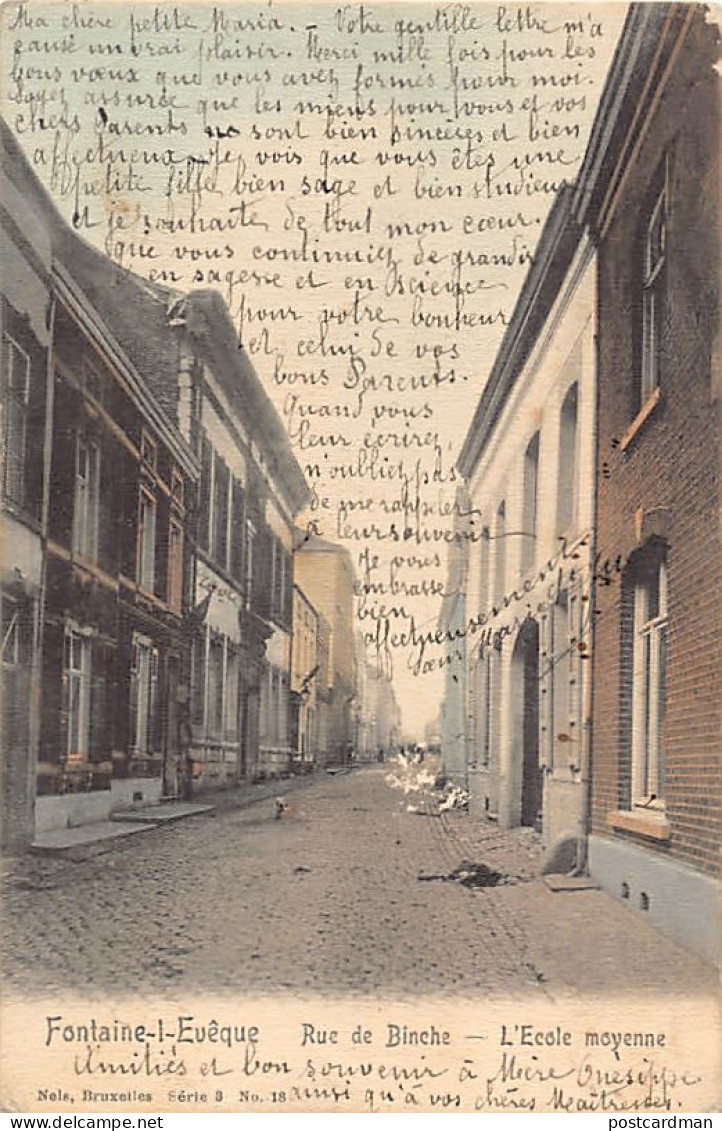 Ma chère petite Maria. – Votre gentille lettre m'a
causé un vrai plaisir. – Merci mille fois pour les
bons vœux que vous avez formés pour moi.
Soyez assurée que les miens pour vous et vos
chers Parents ne sont bien sincères et bien
affectueux. – Je vois que vous êtes une
petite fille bien sage et bien studieuse
et je souhaite de tout mon cœur
que vous continuiez de grandir
en sagesse et en science
pour votre bonheur
et celui de vos
bons Parents.
Quand vous
leur écrirez
n'oubliez pas
de me rappeler
à leur souvenir
Je vous
embrasse
bien
affectueusement
Sœur Marie
Fontaine-l-Evêque Rue de Binche — L'Ecole moyenne
Amitiés et bon souvenir à Mère Onésippe
Nels, Bruxelles Série 3 No. 18 ainsi qu'à vos chères Maîtresses.
postcardman.